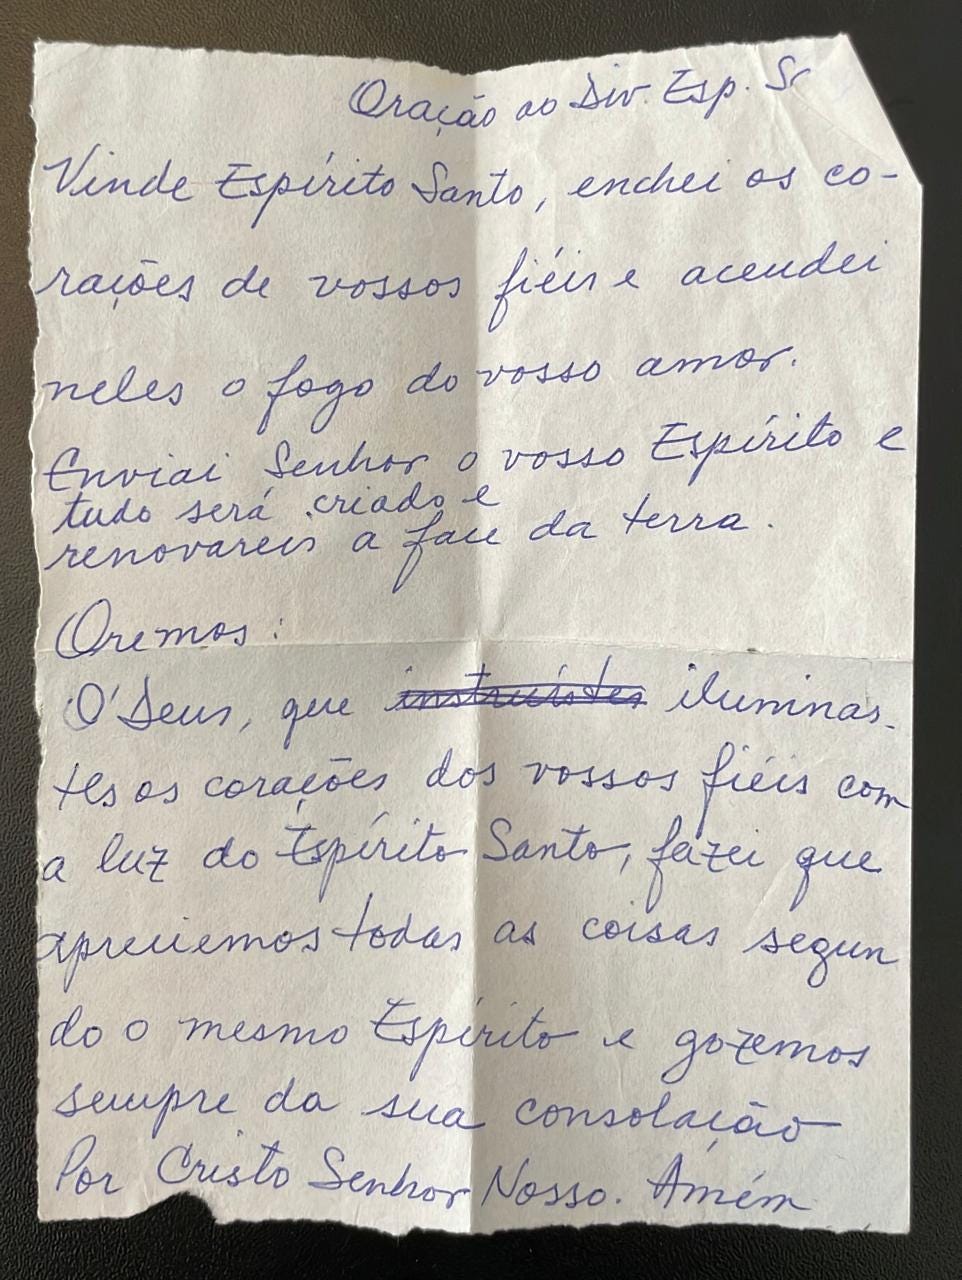 Oração ao Div. Esp. St
Vinde Espírito Santo, enchei os co-
rações de vossos fiéis e acendei
neles o fogo do vosso amor.
Enviai Senhor o vosso Espírito e
tudo será criado e
renovareis a face da terra.
Oremos:
Ó Deus, que instruístes iluminas-
tes os corações dos vossos fiéis com
a luz do Espírito Santo, fazei que
apreciemos todas as coisas segun
do o mesmo Espírito e gozemos
sempre da sua consolação
Por Cristo Senhor Nosso. Amém